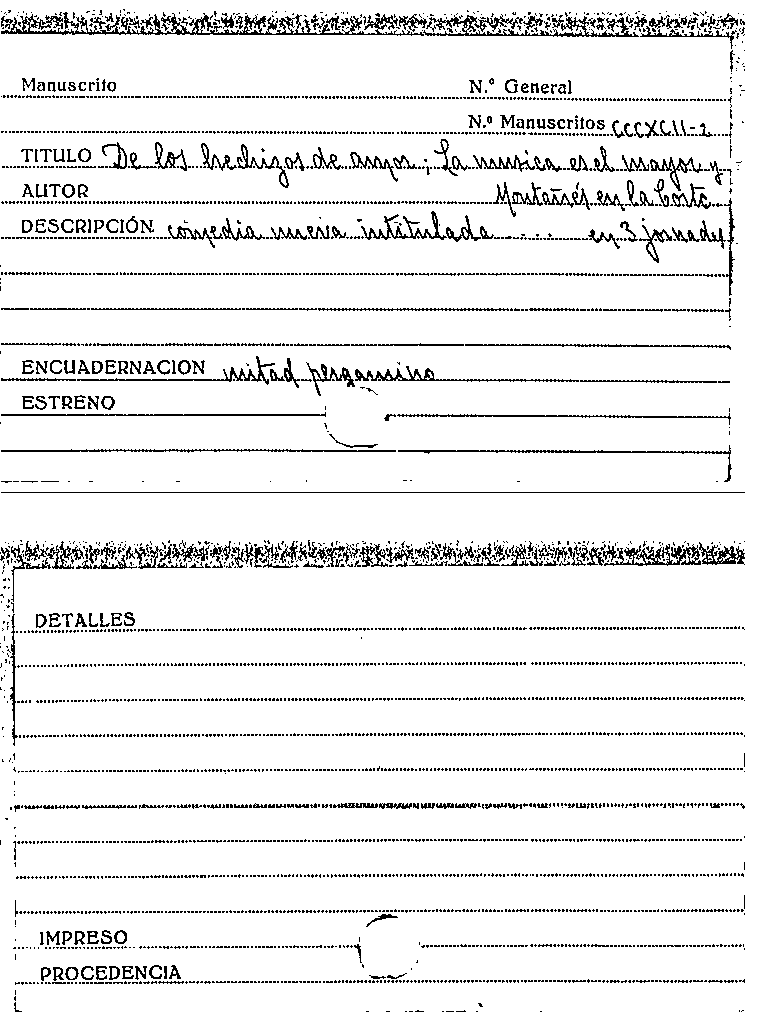 Manuscrito N.º General
N.º Manuscritos CCCXCII-2
TITULO De los hechizos de amor; La musica es el mayor y
AUTOR Montañés en la Corte
DESCRIPCIÓN comedia nueva intitulada ... en 3 jornadas
ENCUADERNACION mitad pergamino
ESTRENO
DETALLES
IMPRESO
PROCEDENCIA